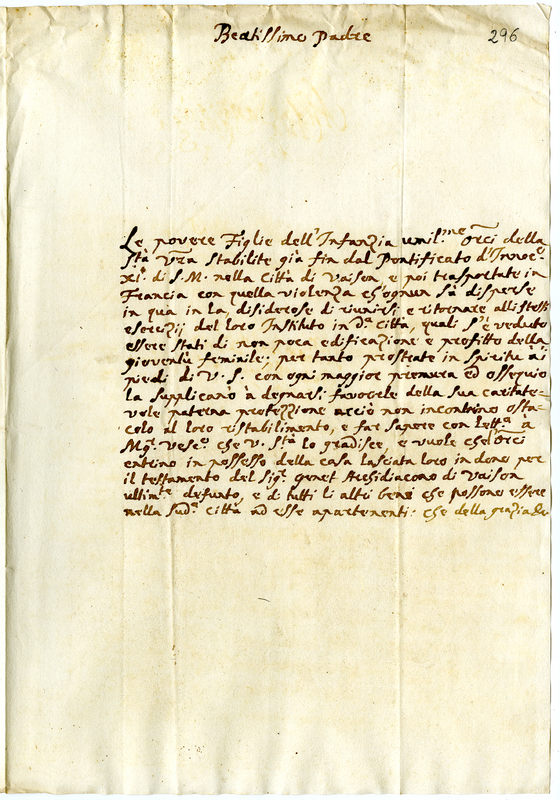 Beatissimo Padre
296
Le povere Figlie dell'Infanzia umil.me Orci della
Stà Vra stabilite già fin dal Pontificato d'Innoc.o
xi.o di S. M. nella Città di Vaison, e poi trasportate in
Francia con quella violenza ch'ognun sà disperse
in qua in la, disiderose di riunirsi e ritornare alli stessi
esercizij del loro Instituto in d.a città, quali s'è veduto
essere stati di non poca edificazione e profitto della
gioventù feminile; per tanto prostrate in Spiritu ài
piedi di V. S. con ogni maggior premura ed ossequio
la supplicano à degnarsi favorele della sua caritate=
vole paterna protezzione acciò non incontrino osta=
colo al loro ristabilimento, e far sapere con Lett.a à
Mgr. Vesc.o che V. Stà lo gradisce, e vuole che l'Orci
entrino in possesso della casa lasciata loro in dono per
il testamento del Sigr. genet Archidiacono di Vaison
ultim.te defunto, e di tutti li altri beni che possono essere
nella Sud.a città ad esse apartenenti: che della grazia &c